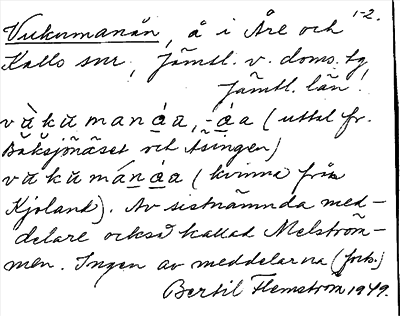 1-2.
Vukumanån, å i Åre och
Kallo snr, Jämtl. v. doms. tg
Jämtl. län.
vùkumanåa, -åa (uttal fr.
Bäksjönäset och Åsingen)
vūkūmanåa (kvinna från
Kjoland). Av sistnämnda med-
delare också kallad Melström-
men. Ingen av meddelarna (forts.)
Bertil Flemström 1949.